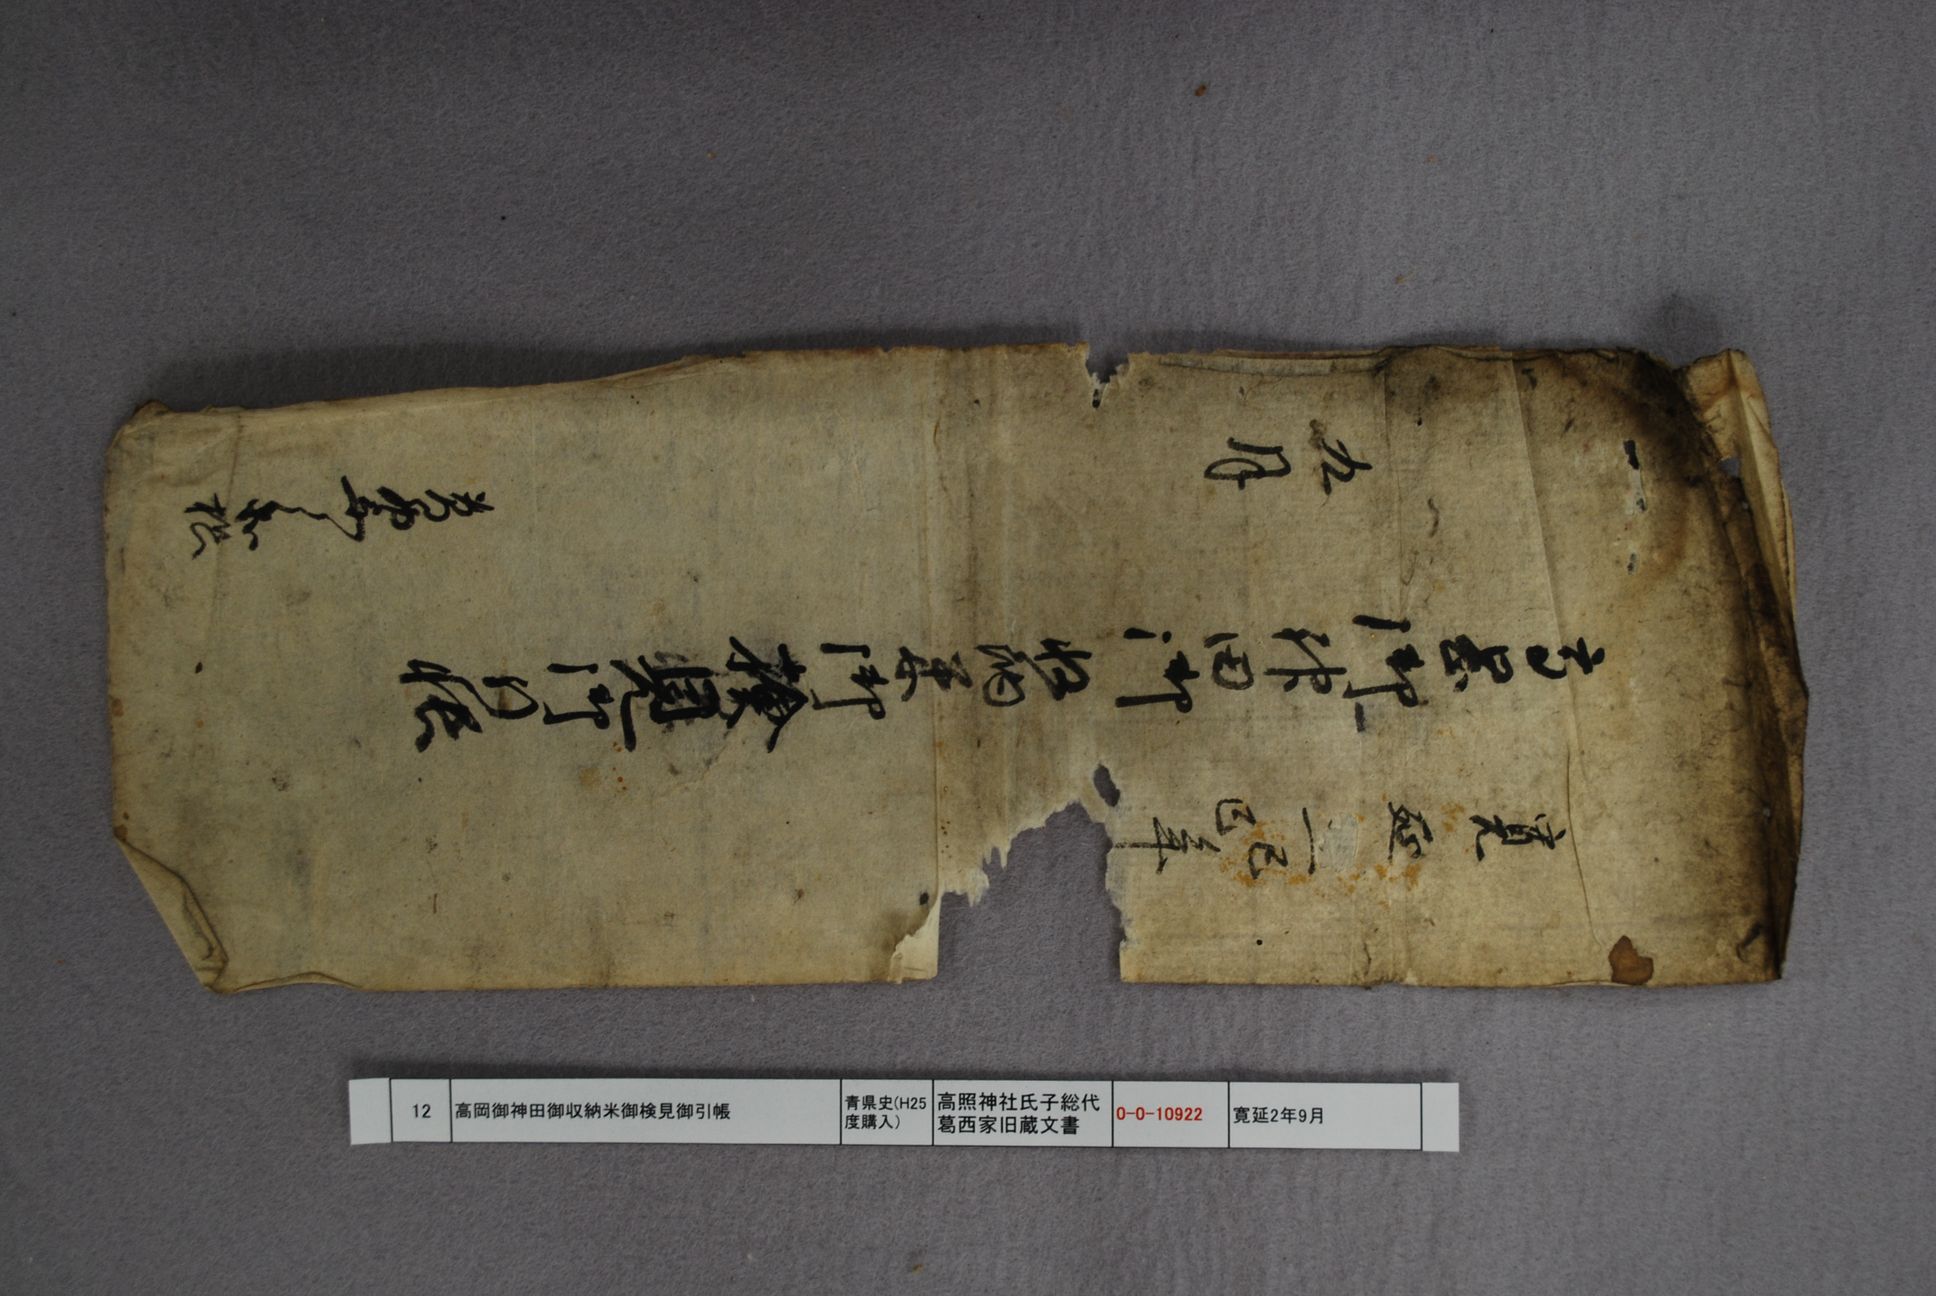 寛延二己巳年
高岡御神田御収納米御検見御引帳
九月
12
高岡御神田御収納米御検見御引帳
青県史(H25
度購入)
高照神社氏子総代
葛西家旧蔵文書
0-0-10922
寛延2年9月